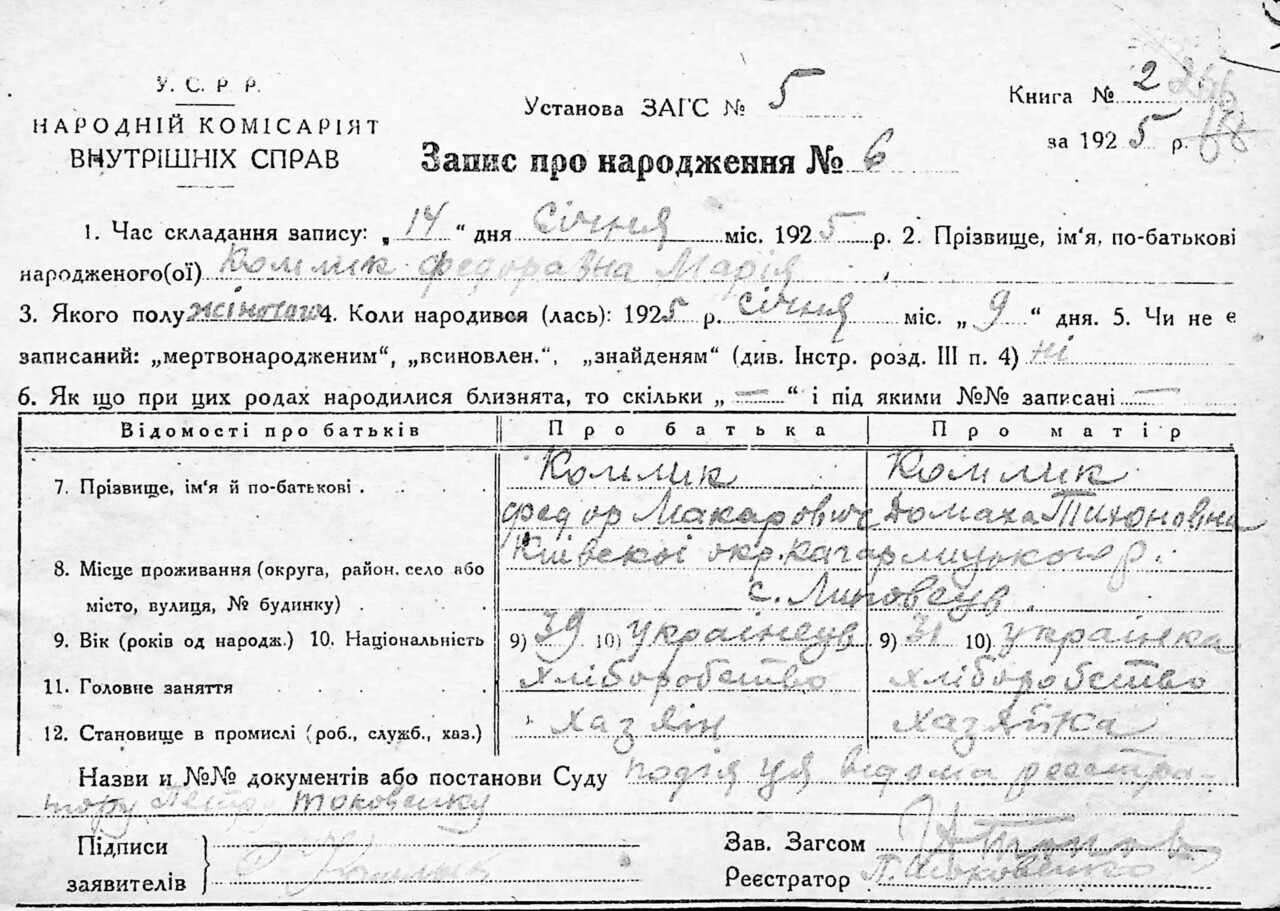 У. С. Р. Р.
НАРОДНІЙ КОМІСАРІЯТ
ВНУТРІШНІХ СПРАВ
Установа ЗАГС № 5
Книга № 2
за 1925 р.
Запис про народження № 6
1. Час складання запису: „14“ дня Січня міс. 1925 р. 2. Прізвище, ім‘я, по-батькові
народженого(ої) Комлик Федоравна Марія
3. Якого полу жіночого 4. Коли народився (лась): 1925 р. Січня міс. „9“ дня. 5. Чи не є
записаний: „мертвонародженим“, „всиновлен.“, „знайденям“ (див. Інстр. розд. III п. 4) ні
6. Як що при цих родах народилися близнята, то скільки „—“ і під якими №№ записані —
Відомості про батьків Про батька Про матір
7. Прізвище, ім‘я й по-батькові Комлик Комлик
Федор Макарович Домаха Тихоновна
8. Місце проживання (округа, район, село або Київскоі окр. Кагарлицького р.
місто, вулиця, № будинку) с. Липовець
9. Вік (років од народж.) 10. Національність 9) 39 10) українець 9) 31 10) українка
11. Головне заняття хліборобство хліборобство
12. Становище в промислі (роб., служб., хаз.) хазяін хазяйка
Назви и №№ документів або постанови Суду подія ця відома реестра-
тору Петру
Підписи
заявителів Комлик
Зав. Загсом
Реєстратор П.